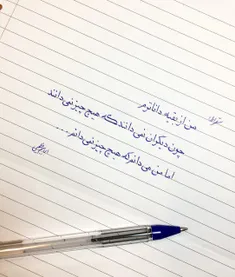 سقراط:
من از بقیه داناترم
چون دیگران نمی دانند که هیچ چیز نمی دانند
اما من می دانم که هیچ چیز نمی دانم....